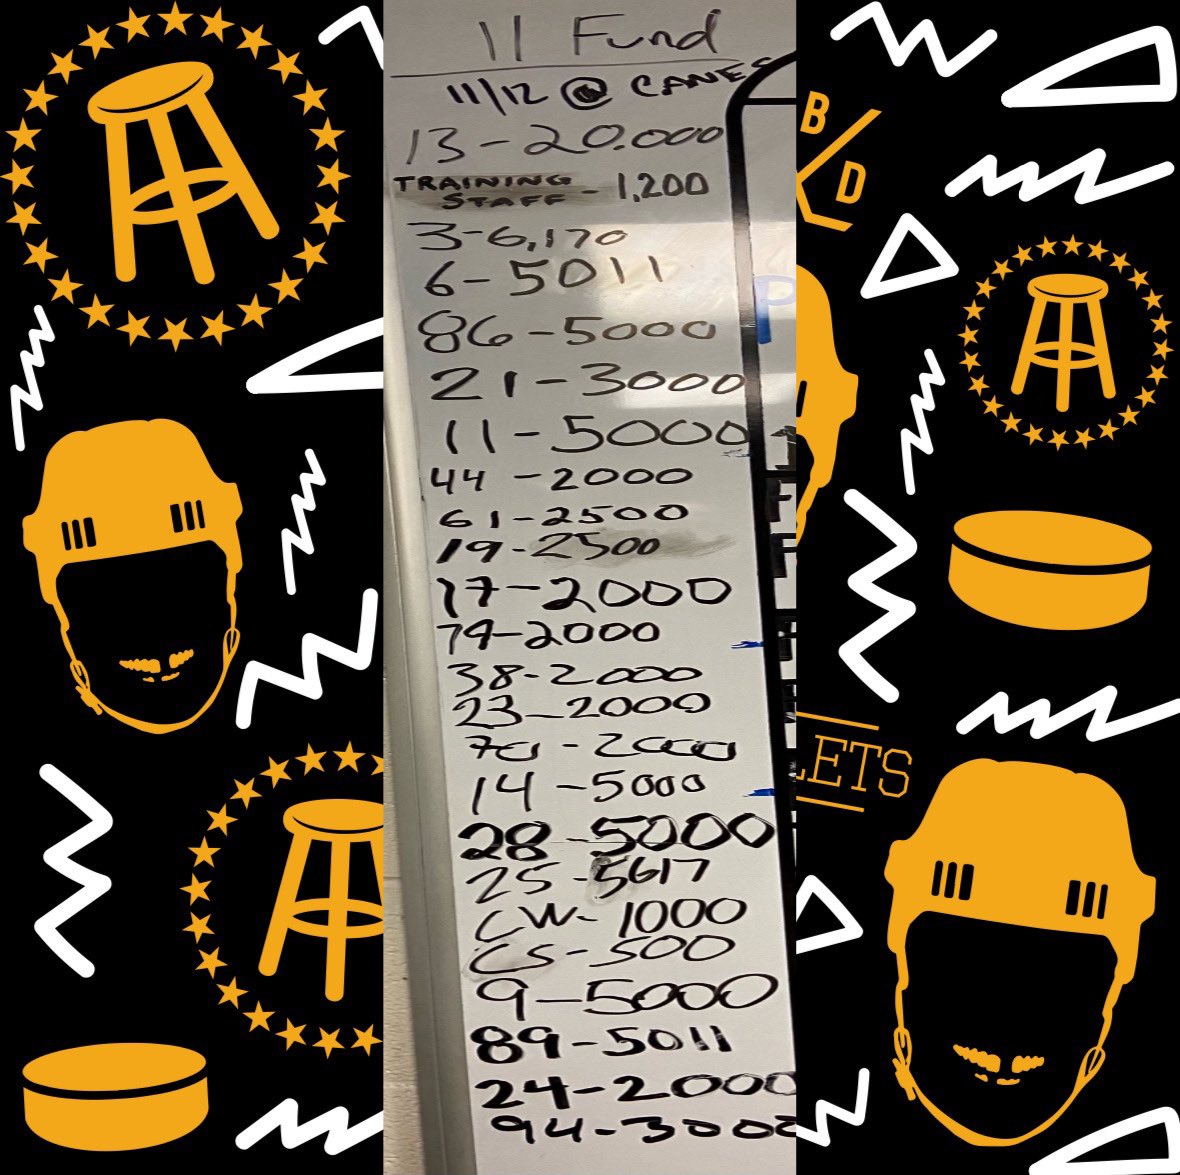 11 Fund
11/12 @ CANES
13-20.000
TRAINING STAFF - 1,200
3-6,170
6-5011
86-5000
21-3000
11-5000
44-2000
61-2500
19-2500
17-2000
74-2000
38-2000
23-2000
70-2000
14-5000
28-5000
25-5617
CW-1000
CS-500
9-5000
89-5011
24-2000
94-3000
B/D
LETS